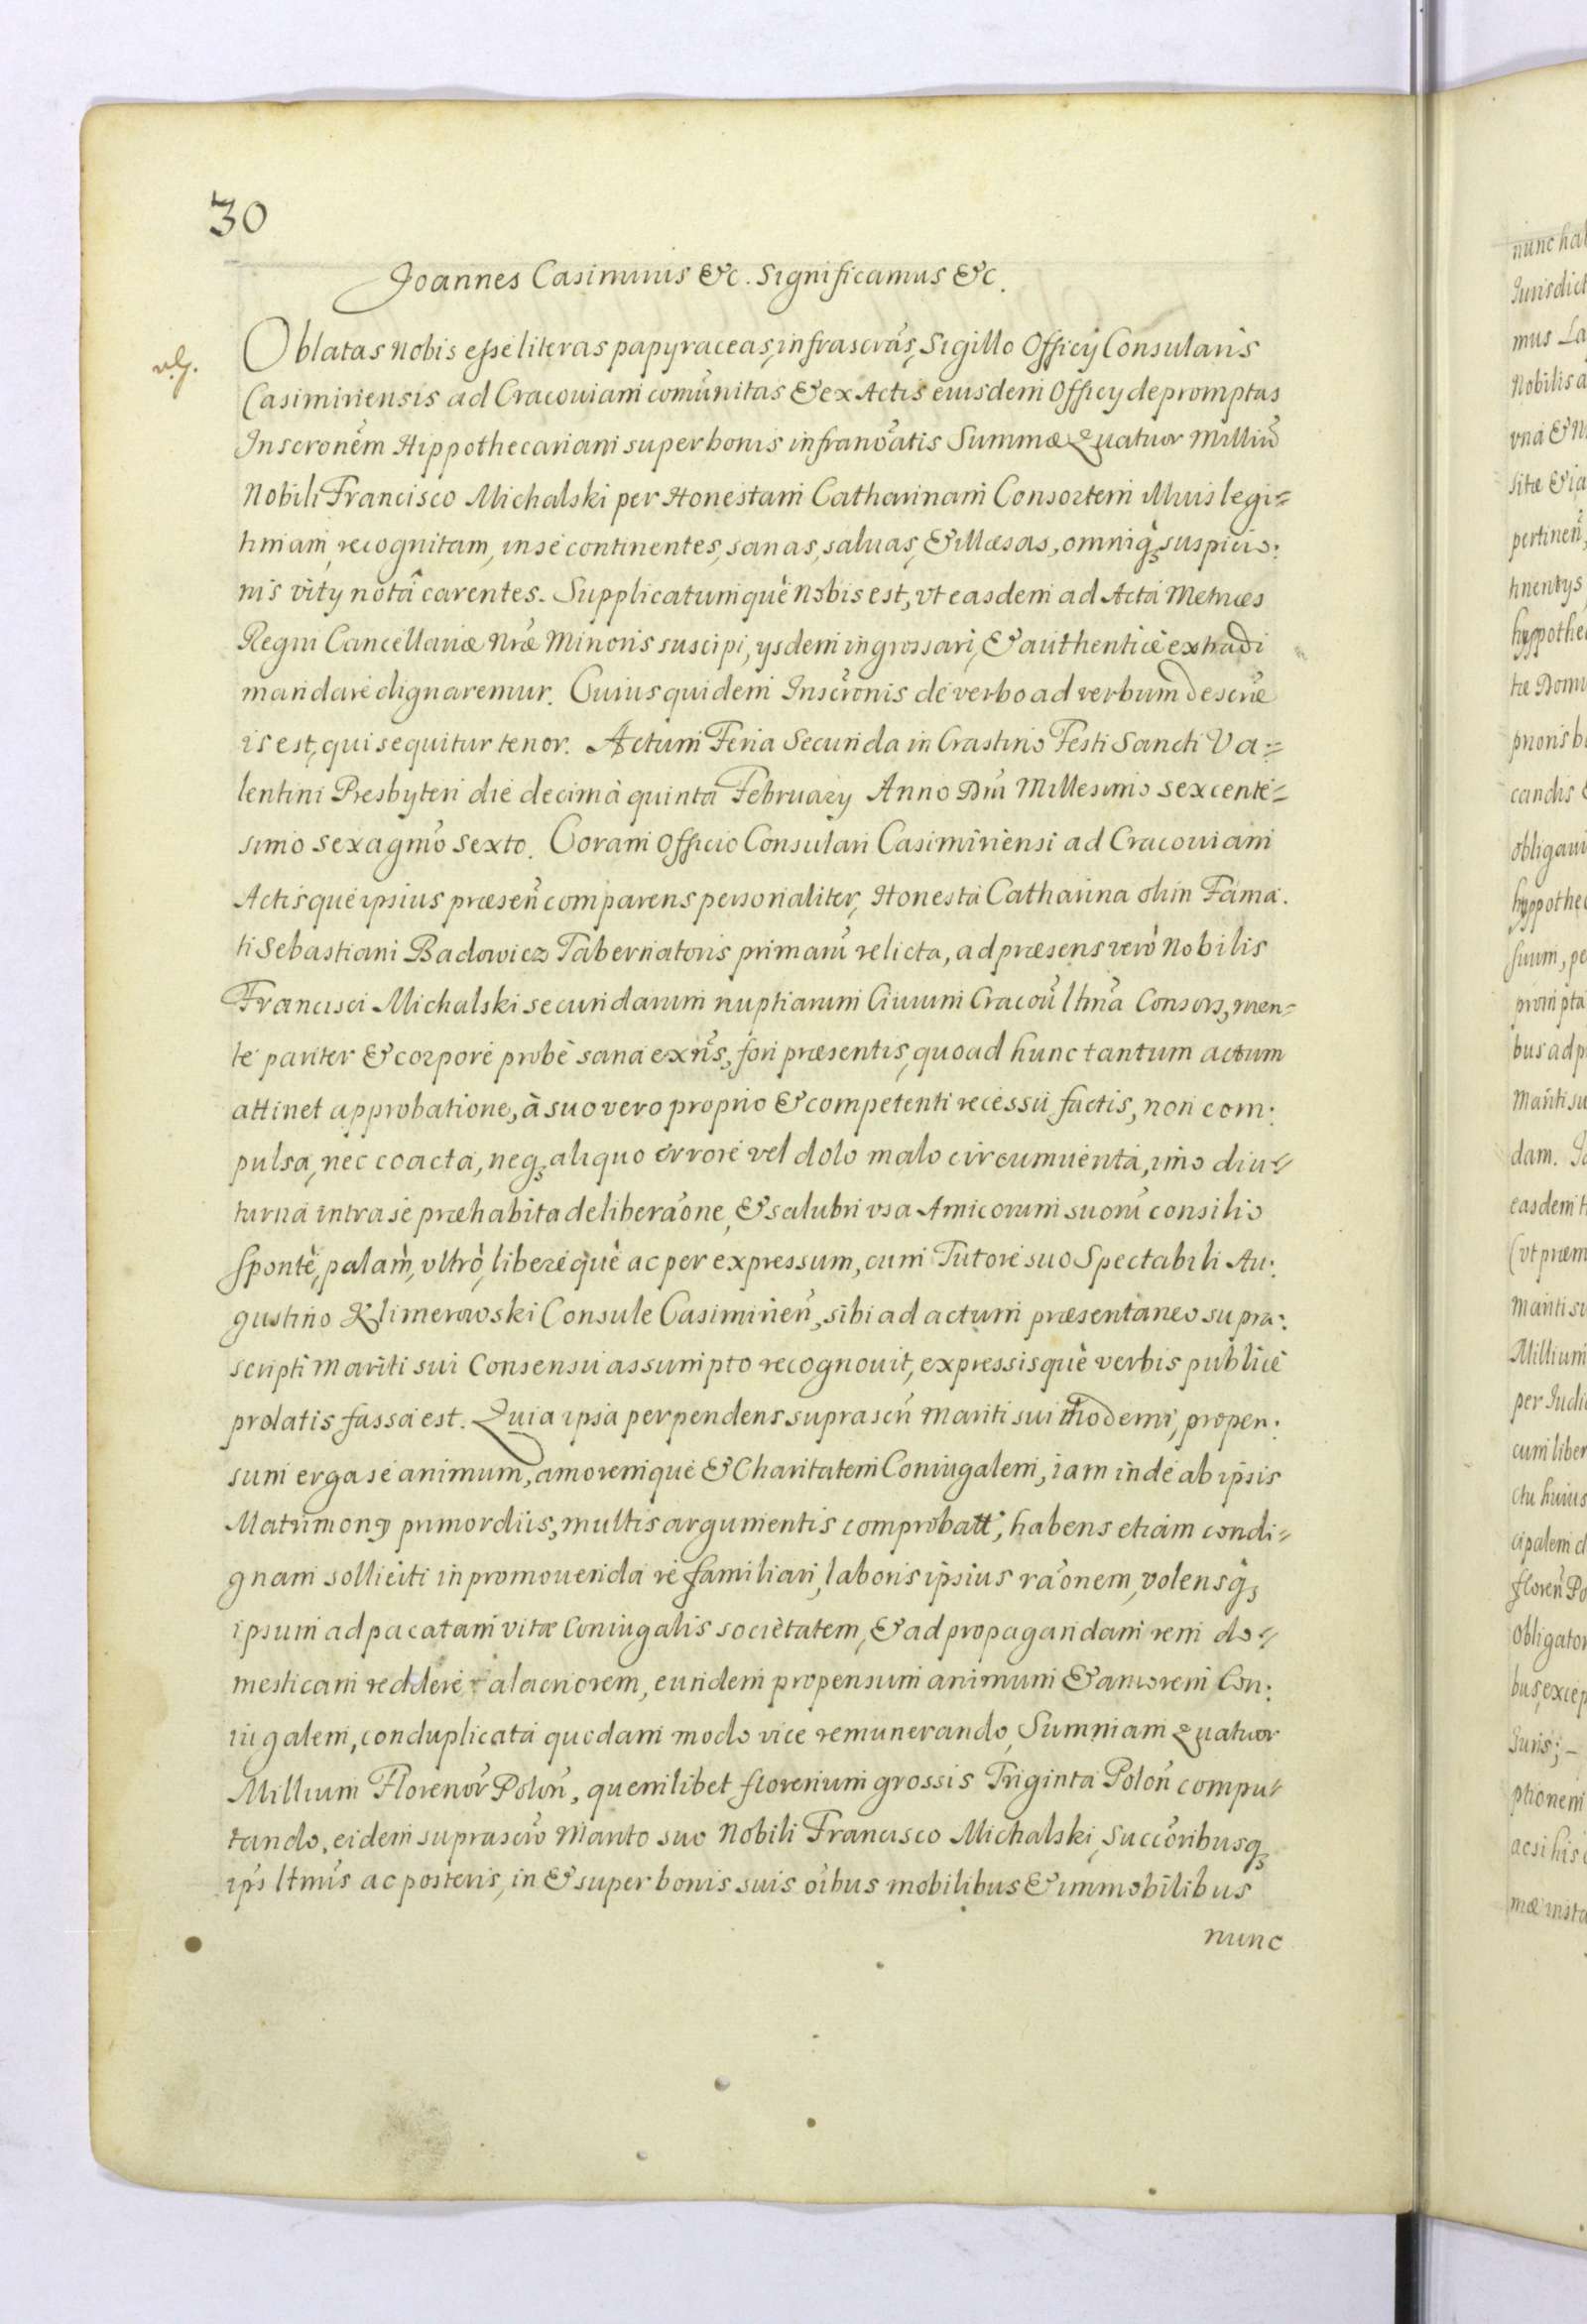 30
Joannes Casimirus &c. Significamus &c.
Oblatas nobis esse literas papyraceas, infrascrãs, Sigillo Officij Consularis
Casimiriensis ad Cracouiam comũnitas & ex Actis eiusdem Officij depromptas
Inscrõnem Hippothecariam super bonis infranõatis Summæ Quatuor Milliũ
Nobili Francisco Michalski per Honestam Catharinam Consortem illius legi=
timam, recognitam, in se continentes, sanas, saluas, & illæsas, omniq̃ suspicio:
nis vitij notâ carentes. Supplicatumquè nobis est, vt easdem ad Acta Metrices
Regni Cancellariæ Nr̃æ Minoris suscipi, ijsdem ingrossari, & authenticè extradi
mandare dignaremur. Cuius quidem Inscrõnis de verbo ad verbum descrũæ
is est, qui sequitur tenor. Actum Feria Secunda in Crastino Festi Sancti Va:=
lentini Presbyteri die decima quinta February Anno Dñi Millesimo sexcente=
simo sexagmõ sexto. Coram Officio Consulari Casimiriensi ad Cracouiam
Actisque ipsius præseñ comparens personaliter, Honesta Catharina olim Fama.
ti Sebastiani Badowicz Tabernatoris primarũ relicta, ad præsens verò Nobilis
Francisci Michalski secundarum nuptiarum Ciuium Cracoũ ltm̃a Consors, men=
te pariter & corpore probè sana exñs, fori præsentis, quoad hunc tantum actum
attinet approbatione, à suo vero proprio & competenti recessu factis, non com:
pulsa, nec coacta, neq; aliquo errore vel dolo malo circumuenta, imo diu=
turna intra se præhabita deliberãone, & salubri vsa Amicorum suorũ consilio
sponte, palàm, vltrò, liberequè ac per expressum, cum Tutore suo Spectabili Au:
gustino Klimerowski Consule Casimirieñ, sibi ad actum præsentaneo supra:
scripti mariti sui Consensu assumpto recognouit, expressisquè verbis publicè
prolatis fassa est. Quia ipsa perpendens suprascrĩ Mariti sui moderni, propen:
sum erga se animum, amoremque & Charitatem Coniugalem, iam inde ab ipsis
Matrimony primordiis, multis argumentis comprobatũ, habens etiam condi=
gnam solliciti in promouenda re familiari, laboris ipsius rãonem, volensq̃;
ipsum ad pacatam vitæ Coniugalis societatem, & ad propagandam rem do=
mesticam reddere alacriorem, eundem propensum animum & amorem Con:
iugalem, conduplicata quodam modo vice remunerando, Summam Quatuor
Millium Florenõr Poloñ, quemlibet florenum grossis Triginta Poloñ compu=
tando, eidem suprascrõ Marito suo Nobili Francisco Michalski, Succõribusq;
ip̃s ltmĩs ac posteris, in & super bonis suis oĩbus mobilibus & immobilibus
nunc